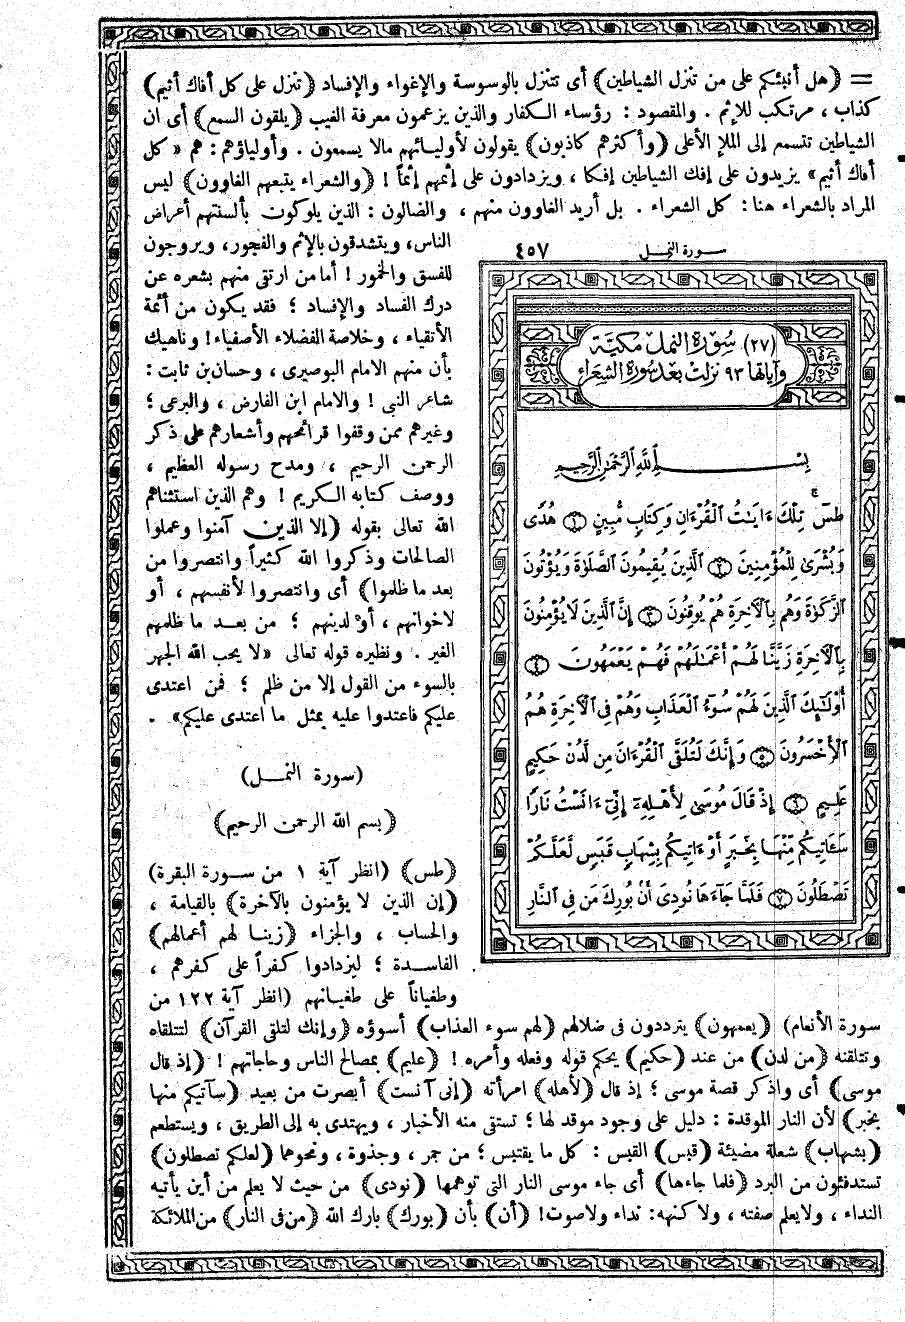 = (هل أنبئكم على من تنزل الشياطين) أى تتنزل بالوسوسة والإغواء والإفساد (تنزل على كل أفاك أثيم)
كذاب ، مرتكب للإثم . والمقصود : رؤساء الكفار والذين يزعمون معرفة الغيب (يلقون السمع) أى أن
الشياطين تتسمع إلى الملإ الأعلى (وأكثرهم كاذبون) يقولون لأوليائهم مالا يسمعون . وأولياؤهم : هم « كل
أفاك أثيم » يزيدون على إفك الشياطين إفكا ، ويزدادون على إثمهم إثماً ! (والشعراء يتبعهم الغاوون) ليس
المراد بالشعراء هنا : كل الشعراء . بل أريد الغاوون منهم ، والضالون : الذين يلوكون بألسنتهم أعراض
الناس، ويتشدقون بالإثم والفجور، ويروجون
للفسق والخمور ! أما من ارتقى منهم بشعره عن
درك الفساد والإفساد ؛ فقد يكون من أئمة
الأتقياء ، وخلاصة الفضلاء الأصفياء! وناهيك
بأن منهم الامام البوصيرى ، وحسان بن ثابت :
شاعر النبى ! والامام ابن الفارض ، والبرعى ؛
وغيرهم ممن وقفوا قرائحهم وأشعارهم على ذكر
الرحمن الرحيم ، ومدح رسوله العظيم ،
ووصف كتابه الكريم ! وهم الذين استثناهم
الله تعالى بقوله (إلا الذين آمنوا وعملوا
الصالحات وذكروا الله كثيراً وانتصروا من
بعد ما ظلموا) أى وانتصروا لأنفسهم ، أو
لاخوانهم ، أو لدينهم ؛ من بعد ما ظلمهم
الغير . ونظيره قوله تعالى «لا يحب الله الجهر
بالسوء من القول إلا من ظلم ؛ فمن اعتدى
عليكم فاعتدوا عليه بمثل ما اعتدى عليكم» .
(سورة النمل)
(بسم الله الرحمن الرحيم)
(طس) (انظر آية ١ من سورة البقرة)
(إن الذين لا يؤمنون بالآخرة) بالقيامة ،
والحساب ، والجزاء (زينا لهم أعمالهم)
الفاسدة ؛ ليزدادوا كفراً على كفرهم ،
وطغياناً على طغيانهم (انظر آية ١٢٢ من
سورة النمل ٤٥٧
(٢٧) سُورَة النمل مكيَّة
وآياتها ٩٣ نزلت بَعْد سُورَة الشعراء
بِسْمِ ٱللَّهِ ٱلرَّحْمَٰنِ ٱلرَّحِيمِ
طسٓ تِلْكَ ءَايَٰتُ ٱلْقُرْءَانِ وَكِتَابٍ مُّبِينٍ ١ هُدًى
وَبُشْرَىٰ لِلْمُؤْمِنِينَ ٢ ٱلَّذِينَ يُقِيمُونَ ٱلصَّلَوٰةَ وَيُؤْتُونَ
ٱلزَّكَوٰةَ وَهُم بِٱلْأٓخِرَةِ هُمْ يُوقِنُونَ ٣ إِنَّ ٱلَّذِينَ لَا يُؤْمِنُونَ
بِٱلْأٓخِرَةِ زَيَّنَّا لَهُمْ أَعْمَٰلَهُمْ فَهُمْ يَعْمَهُونَ ٤
أُوْلَٰٓئِكَ ٱلَّذِينَ لَهُمْ سُوٓءُ ٱلْعَذَابِ وَهُمْ فِى ٱلْأٓخِرَةِ هُمُ
ٱلْأَخْسَرُونَ ٥ وَإِنَّكَ لَتُلَقَّى ٱلْقُرْءَانَ مِن لَّدُنْ حَكِيمٍ
عَلِيمٍ ٦ إِذْ قَالَ مُوسَىٰ لِأَهْلِهِۦٓ إِنِّىٓ ءَانَسْتُ نَارًا
سَـَٔاتِيكُم مِّنْهَا بِخَبَرٍ أَوْ ءَاتِيكُم بِشِهَابٍ قَبَسٍ لَّعَلَّكُمْ
تَصْطَلُونَ ٧ فَلَمَّا جَآءَهَا نُودِىَ أَنۢ بُورِكَ مَن فِى ٱلنَّارِ
سورة الأنعام) (يعمهون) يترددون فى ضلالهم (لهم سوء العذاب) أسوؤه (وإنك لتلقى القرآن) لتتلقاه
وتتلقنه (من لدن) من عند (حكيم) يحكم قوله وفعله وأمره ! (عليم) بمصالح الناس وحاجاتهم ! (إذ قال
موسى) أى واذكر قصة موسى ؛ إذ قال (لأهله) امرأته (إنى آنست) أبصرت من بعيد (سآتيكم منها
بخبر) لأن النار الموقدة : دليل على وجود موقد لها ؛ تستقى منه الأخبار ، ويهتدى به إلى الطريق ، ويستطعم
(بشهاب) شعلة مضيئة (قبس) القبس : كل ما يقتبس ؛ من جمر ، وجذوة ، ونحوها (لعلكم تصطلون)
تستدفئون من البرد (فلما جاءها) أى جاء موسى النار التى توهمها (نودى) من حيث لا يعلم من أين يأتيه
النداء ، ولا يعلم صفته ، ولا كنهه: نداء ولا صوت! (أن) بأن (بورك) بارك الله (من فى النار) من الملائكة